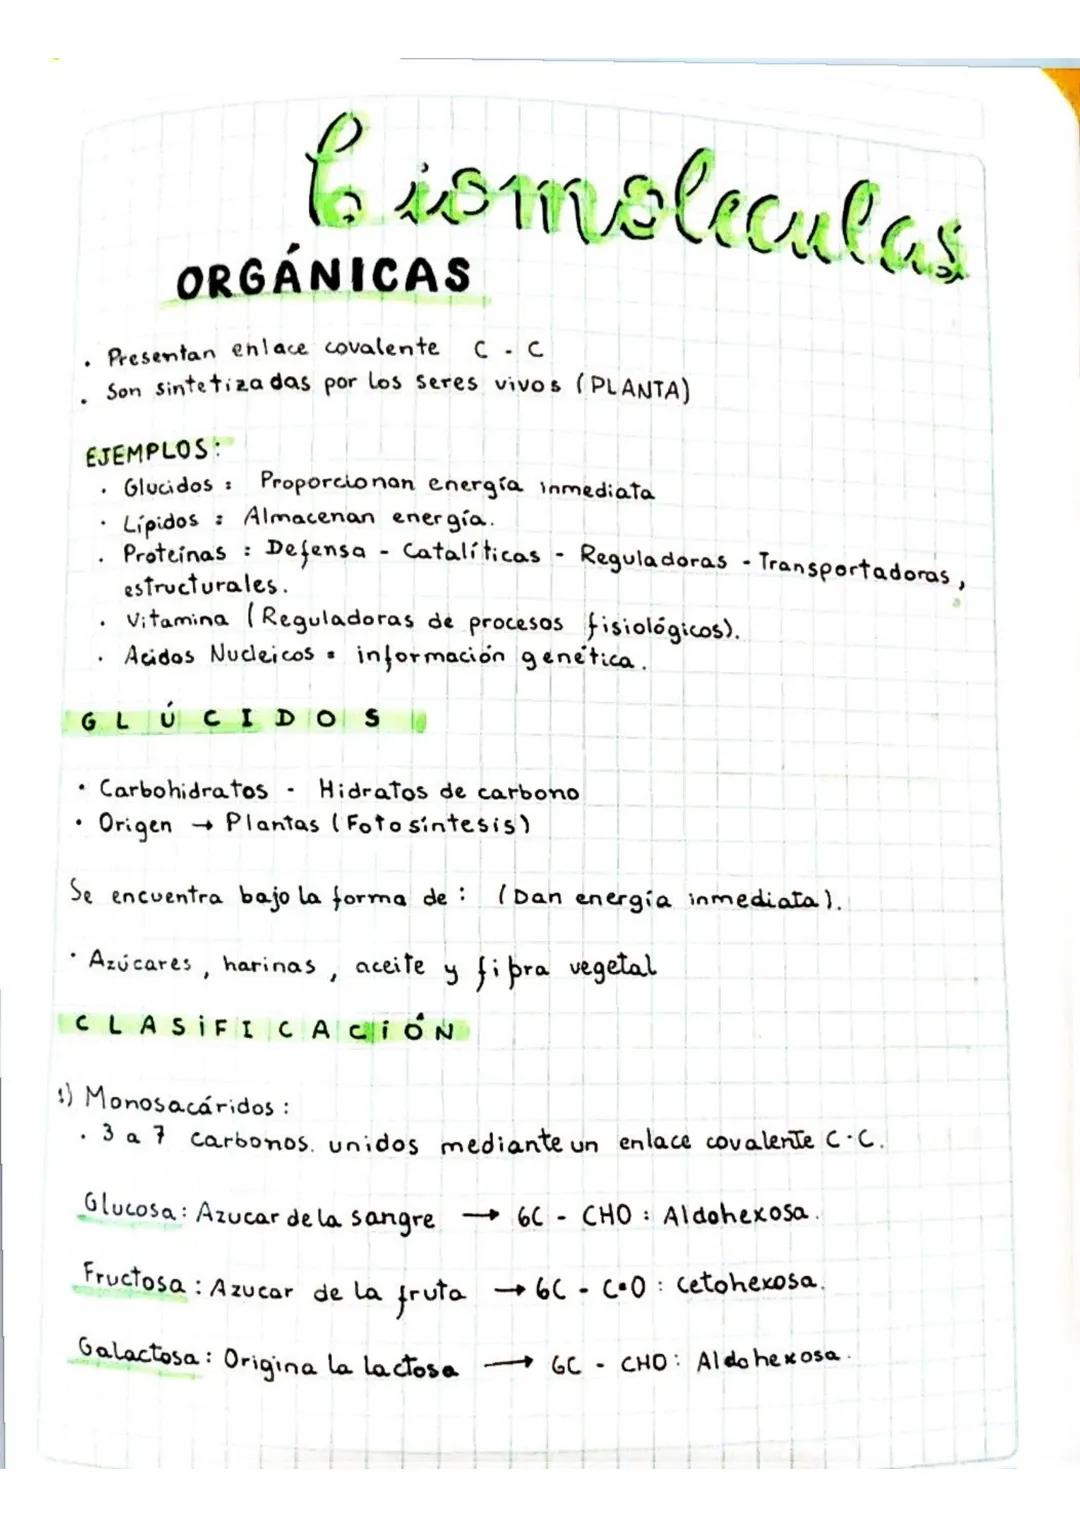 biomoleculas
ORGÁNICAS
. Presentan enlace covalente C - C
. Son sintetizadas por los seres vivos (PLANTA)
EJEMPLOS:
. Glucidos : Proporcionan energía inmediata
. Lípidos : Almacenan energía.
. Proteínas : Defensa - Catalíticas - Reguladoras - Transportadoras,
estructurales.
. Vitamina (Reguladoras de procesos fisiológicos).
. Acidos Nucleicos = información genética.
GLÚCIDOS
• Carbohidratos - Hidratos de carbono
• Origen → Plantas (Fotosíntesis)
Se encuentra bajo la forma de : (Dan energía inmediata).
• Azúcares, harinas, aceite y fibra vegetal
CLASIFICACIÓN
1) Monosacáridos :
. 3 a 7 carbonos. unidos mediante un enlace covalente C-C.
Glucosa : Azucar de la sangre → 6C - CHO : Aldohexosa.
Fructosa : Azucar de la fruta → 6C - C=O : cetohexosa.
Galactosa : Origina la lactosa → 6C - CHO : Aldohexosa.